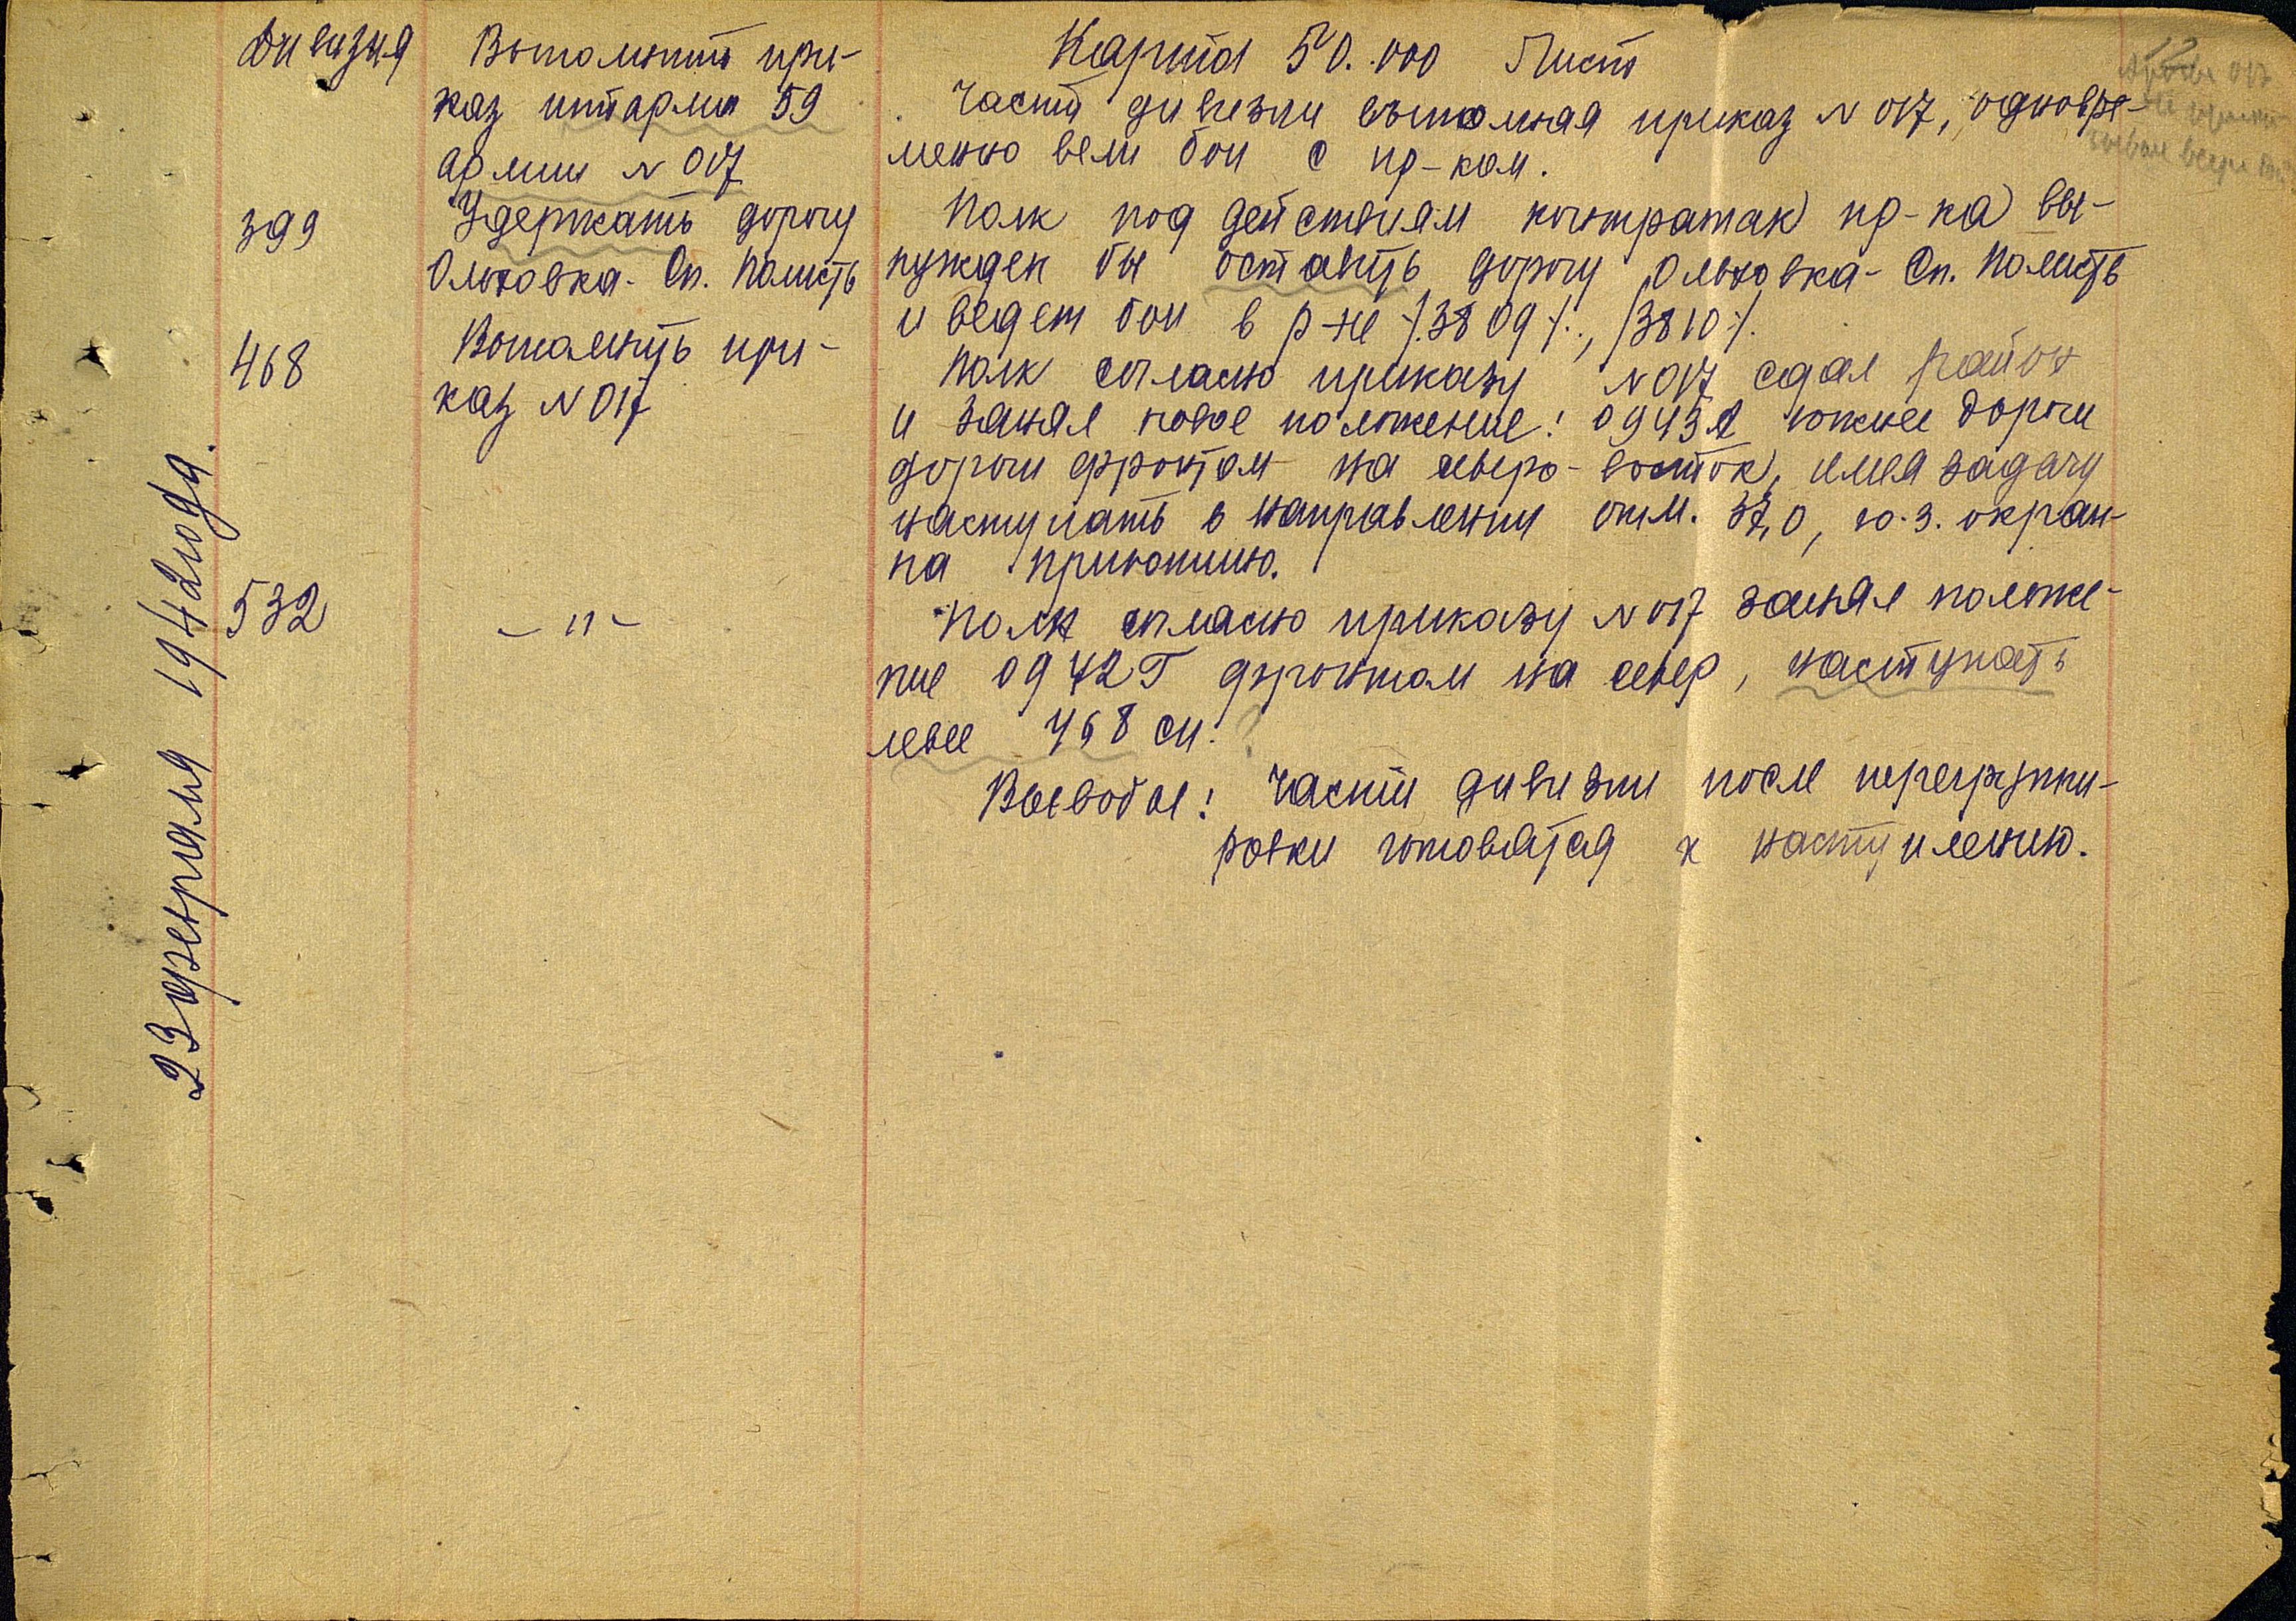 23 февраля 1942 года.
Дивизия
Выполнить при-
каз штарма 59
армии N 017
399
Удержать дорогу
Ольховка - Сп. Полисть
468
Выполнить при-
каз N 017
532
- " -
Карта 50.000 Лист
Части дивизии выполняя приказ N 017, одновре-
менно вели бои с пр-ком.
Полк под действиям контратак пр-ка вы-
нужден бы оставить дорогу Ольховка - Сп. Полисть
и ведет бои в р-не /3809/, /3810/.
Полк согласно приказу N 017 сдал район
и занял новое положение: 0943 южнее дороги
дороги фронтом на северо-восток, имея задачу
наступать в направлении отм. 37,0, ю.з. окраи-
на Приютино.
Полк согласно приказу N 017 занял положе-
ние 0942Г фронтом на север, наступать
левее 468 сп. ?
Выводы: Части дивизии после перегруппи-
ровки готовятся к наступлению.
017